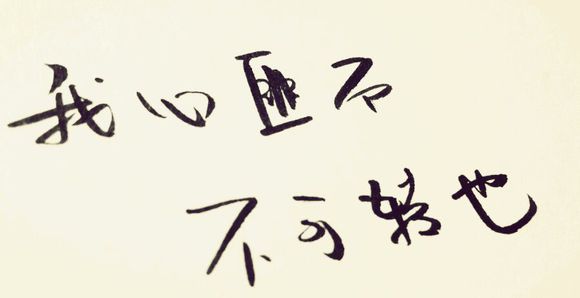 我心匪石
不可转也